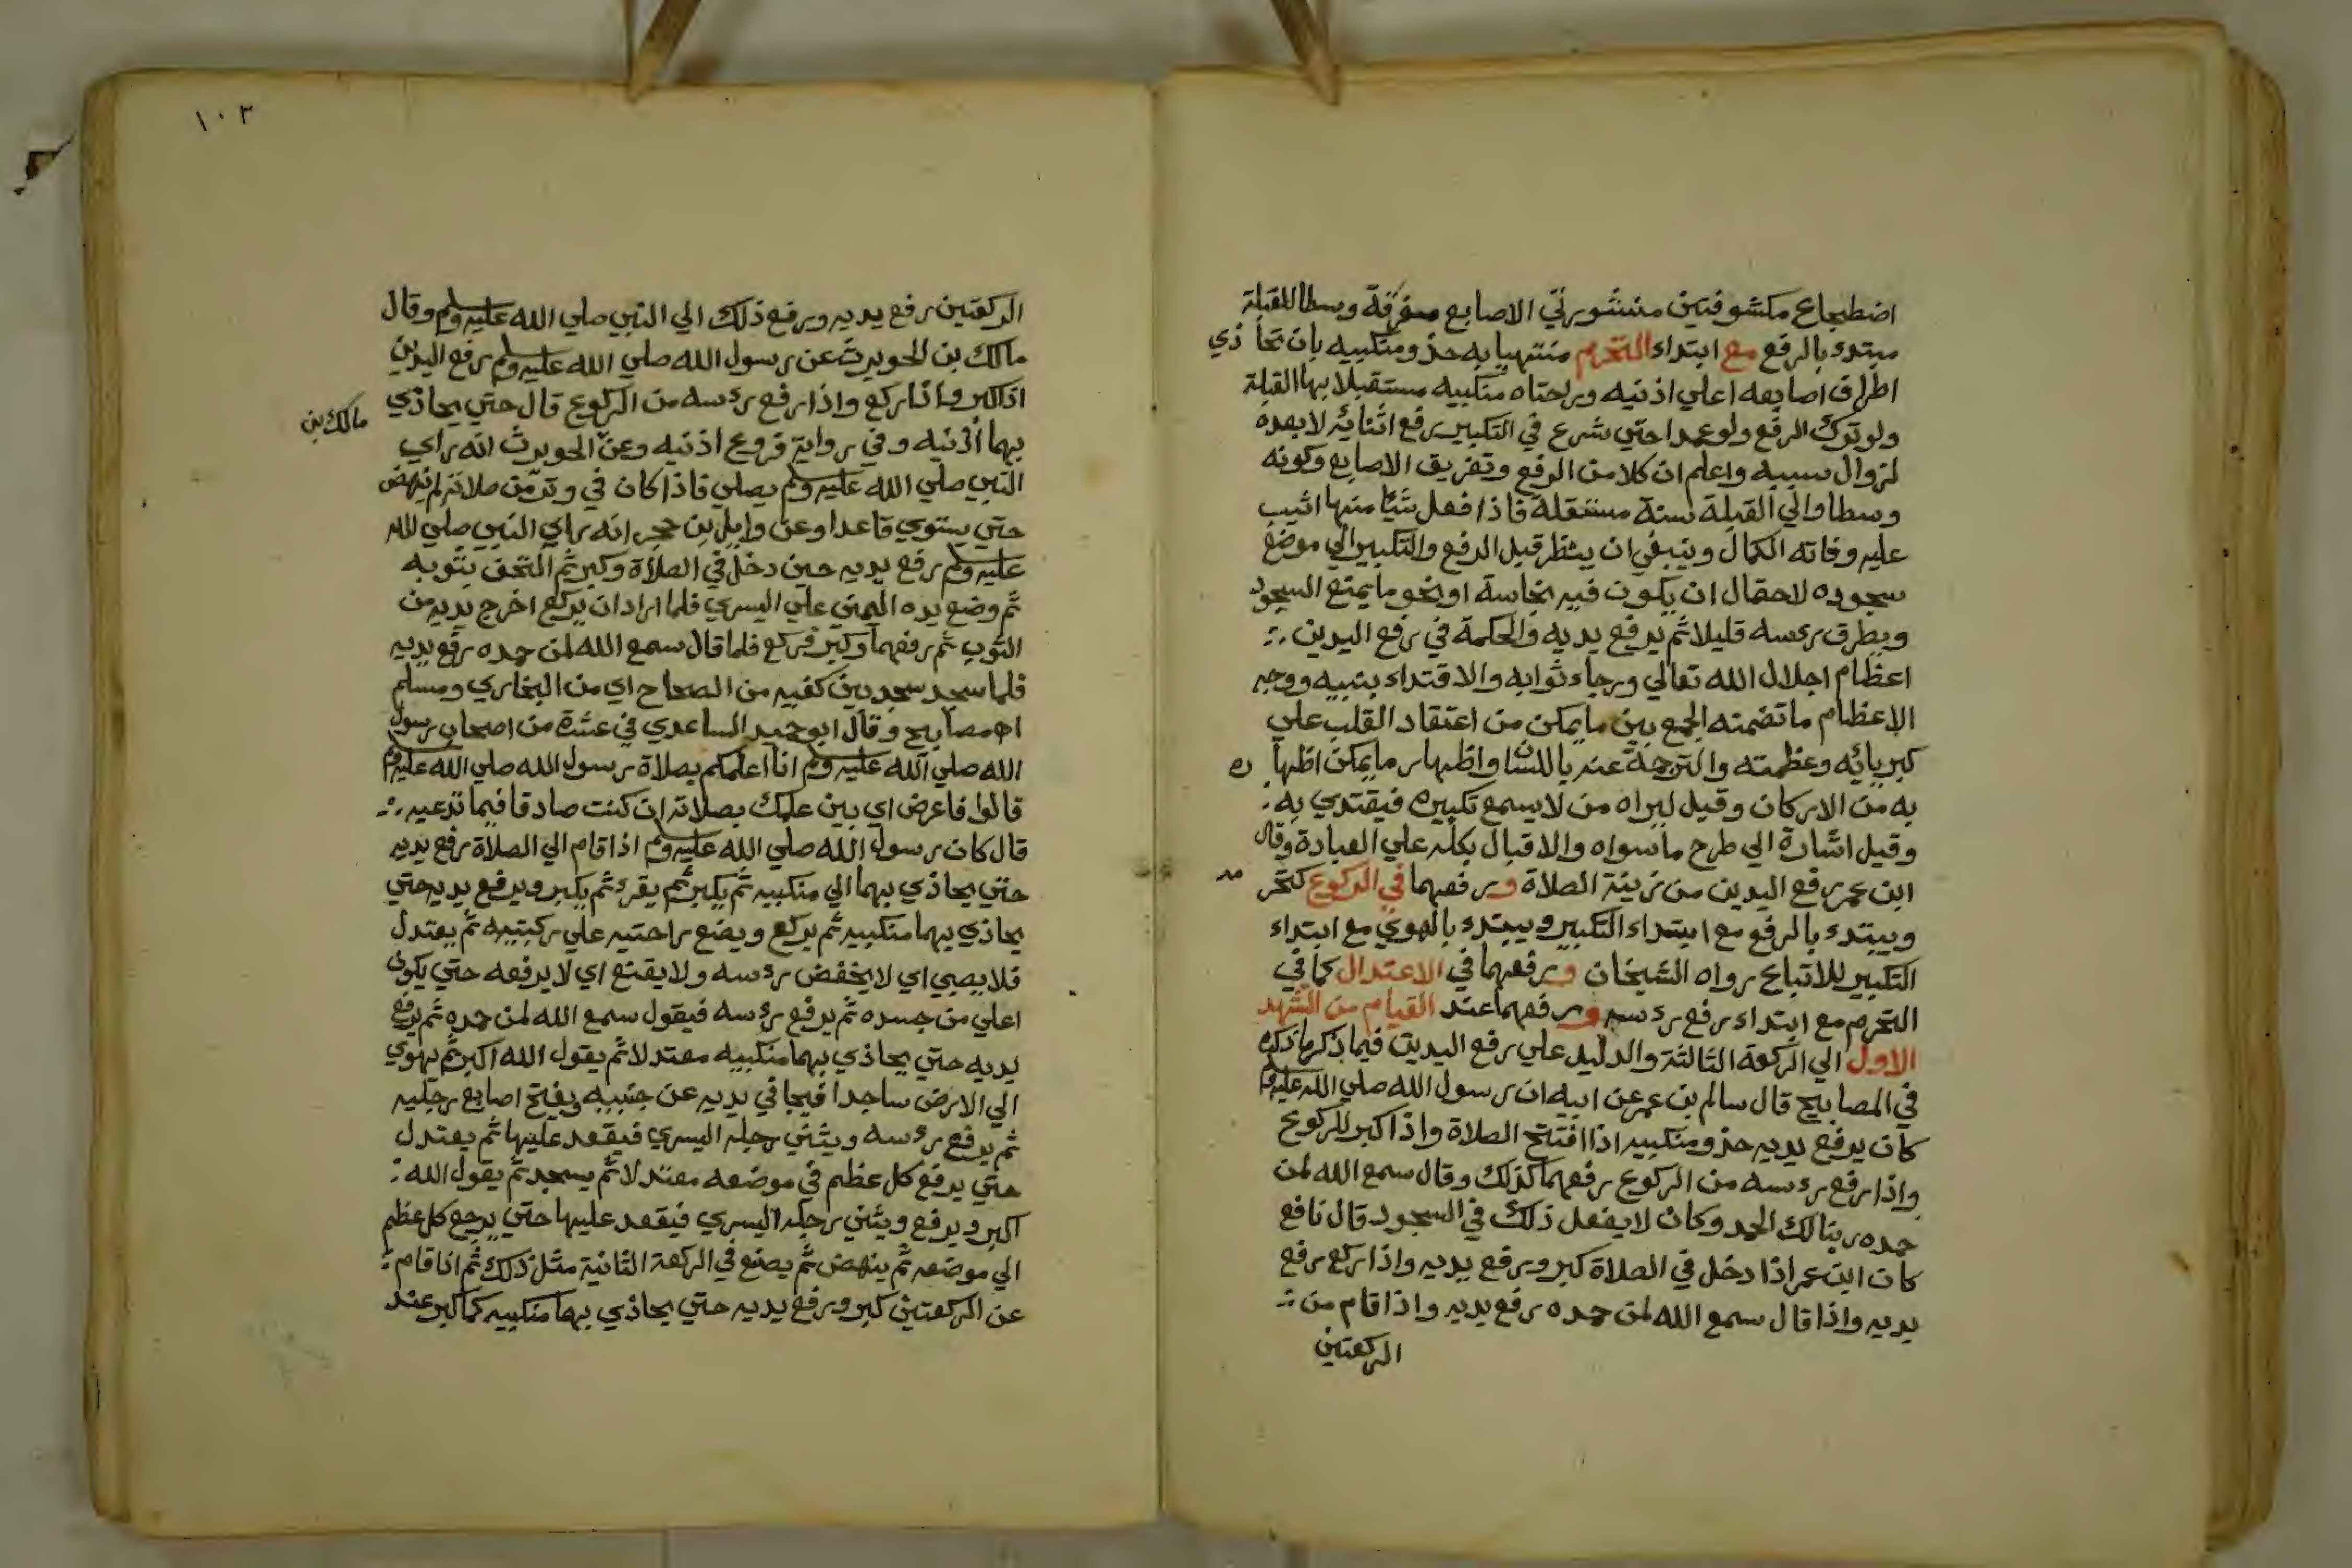 اضطجاع مكشوفتين منشورتي الاصابع مفرقة وسطا للقبلة
مبتدء بالرفع مع ابتداء التحرم منتهيا به حذو منكبيه بان تحاذي
اطراف اصابعه اعلي اذنيه وراحتاه منكبيه مستقبلا بها القبلة
ولو ترك الرفع ولو عمدا حتي شرع في التكبير رفع اثنائه لا بعده
لزوال سببه واعلم ان كلا من الرفع وتفريق الاصابع وكونه
وسطا والي القبلة سنة مستقلة فاذا فعل شيئا منها اثيب
عليه وفاته الكمال وينبغي ان ينظر قبل الرفع والتكبير الي موضع
سجوده لاحتمال ان يكون فيه نجاسة او نحو ما يمنع السجود
ويطرق رءسه قليلا ثم يرفع يديه والحكمة في رفع اليدين
اعظام اجلال الله تعالي ورجاء ثوابه والاقتداء بنبيه ووجه
الاعظام ما تضمنه الجمع بين ما يمكن من اعتقاد القلب علي
كبريائه وعظمته والترجمة عنه باللسان واظهار ما يمكن اظها ره
به من الاركان وقيل ليراه من لا يسمع تكبيره فيقتدي به
وقيل اشارة الي طرح ما سواه والاقبال بكله علي العبادة وقال
ابن عمر رفع اليدين من زينة الصلاة ورفعهما في الركوع كتحر مه
ويبتدء بالرفع مع ابتداء التكبير ويبتدء بالهوي مع ابتداء
التكبير للاتباع رواه الشيخان ورفعهما في الاعتدال كما في
التحرم مع ابتداء رفع رءسه ورفعهما عند القيام من التشهد
الاول الي الركعة الثالثة والدليل علي رفع اليدين فيما ذكر ما ذكره
في المصابيح قال سالم بن عمر عن ابيه ان رسول الله صلي الله عليه وسلم
كان يرفع يديه حذو منكبيه اذا افتتح الصلاة واذا كبر للركوع
واذا رفع رءسه من الركوع رفعهما كذلك وقال سمع الله لمن
حمده ربنا لك الحمد وكان لا يفعل ذلك في السجود قال نافع
كان ابن عمر اذا دخل في الصلاة كبر ورفع يديه واذا ركع رفع
يديه واذا قال سمع الله لمن حمده رفع يديه واذا قام من
الركعتين
١٠٢
الركعتين رفع يديه ورفع ذلك الي النبي صلي الله عليه وسلم وقال
مالك بن الحويرث عن رسول الله صلي الله عليه وسلم رفع اليدين
اذا كبر واذا ركع واذا رفع رءسه من الركوع قال حتي يحاذي
بهما أذنيه وفي رواية فروع اذنيه وعن الحويرث انه راي
مالك بن
النبي صلي الله عليه وسلم يصلي فاذا كان في وتر من صلاته لم ينهض
حتي يستوي قاعدا وعن وايل بن حجر انه راي النبي صلي الله
عليه وسلم رفع يديه حين دخل في الصلاة وكبر ثم التحف بثوبه
ثم وضع يده اليمني علي اليسري فلما اراد ان يركع اخرج يديه من
الثوب ثم رفعهما وكبر فركع فلما قال سمع الله لمن حمده رفع يديه
فلما سجد سجد بين كفيه من الصحاح اي من البخاري ومسلم
اه مصابيح وقال ابو حميد الساعدي في عشرة من اصحاب رسول
الله صلي الله عليه وسلم انا اعلمكم بصلاة رسول الله صلي الله عليه وسلم
قالوا فاعرض اي بين علمك بصلاته ان كنت صادقا فيما تدعيه
قال كان رسول الله صلي الله عليه وسلم اذا قام الي الصلاة رفع يديه
حتي يحاذي بهما الي منكبيه ثم يكبر ثم يقرء ثم يكبر ويرفع يديه حتي
يحاذي بهما منكبيه ثم يركع ويضع راحتيه علي ركبتيه ثم يعتدل
فلا يصبي اي لا يخفض رءسه ولا يقنع اي لا يرفعه حتي يكون
اعلي من جسده ثم يرفع رءسه فيقول سمع الله لمن حمده ثم يرفع
يديه حتي يحاذي بهما منكبيه معتدلا ثم يقول الله اكبر ثم يهوي
الي الارض ساجدا فيجافي يديه عن جنبيه ويفتح اصابع رجليه
ثم يرفع رءسه ويثني رجله اليسري فيقعد عليها ثم يعتدل
حتي يرفع كل عظم في موضعه معتدلا ثم يسجد ثم يقول الله
اكبر ويرفع ويثني رجله اليسري فيقعد عليها حتي يرجع كل عظم
الي موضعه ثم ينهض ثم يصنع في الركعة الثانية مثل ذلك ثم اذا قام
عن الركعتين كبر ورفع يديه حتي يحاذي بهما منكبيه كما كبر عند